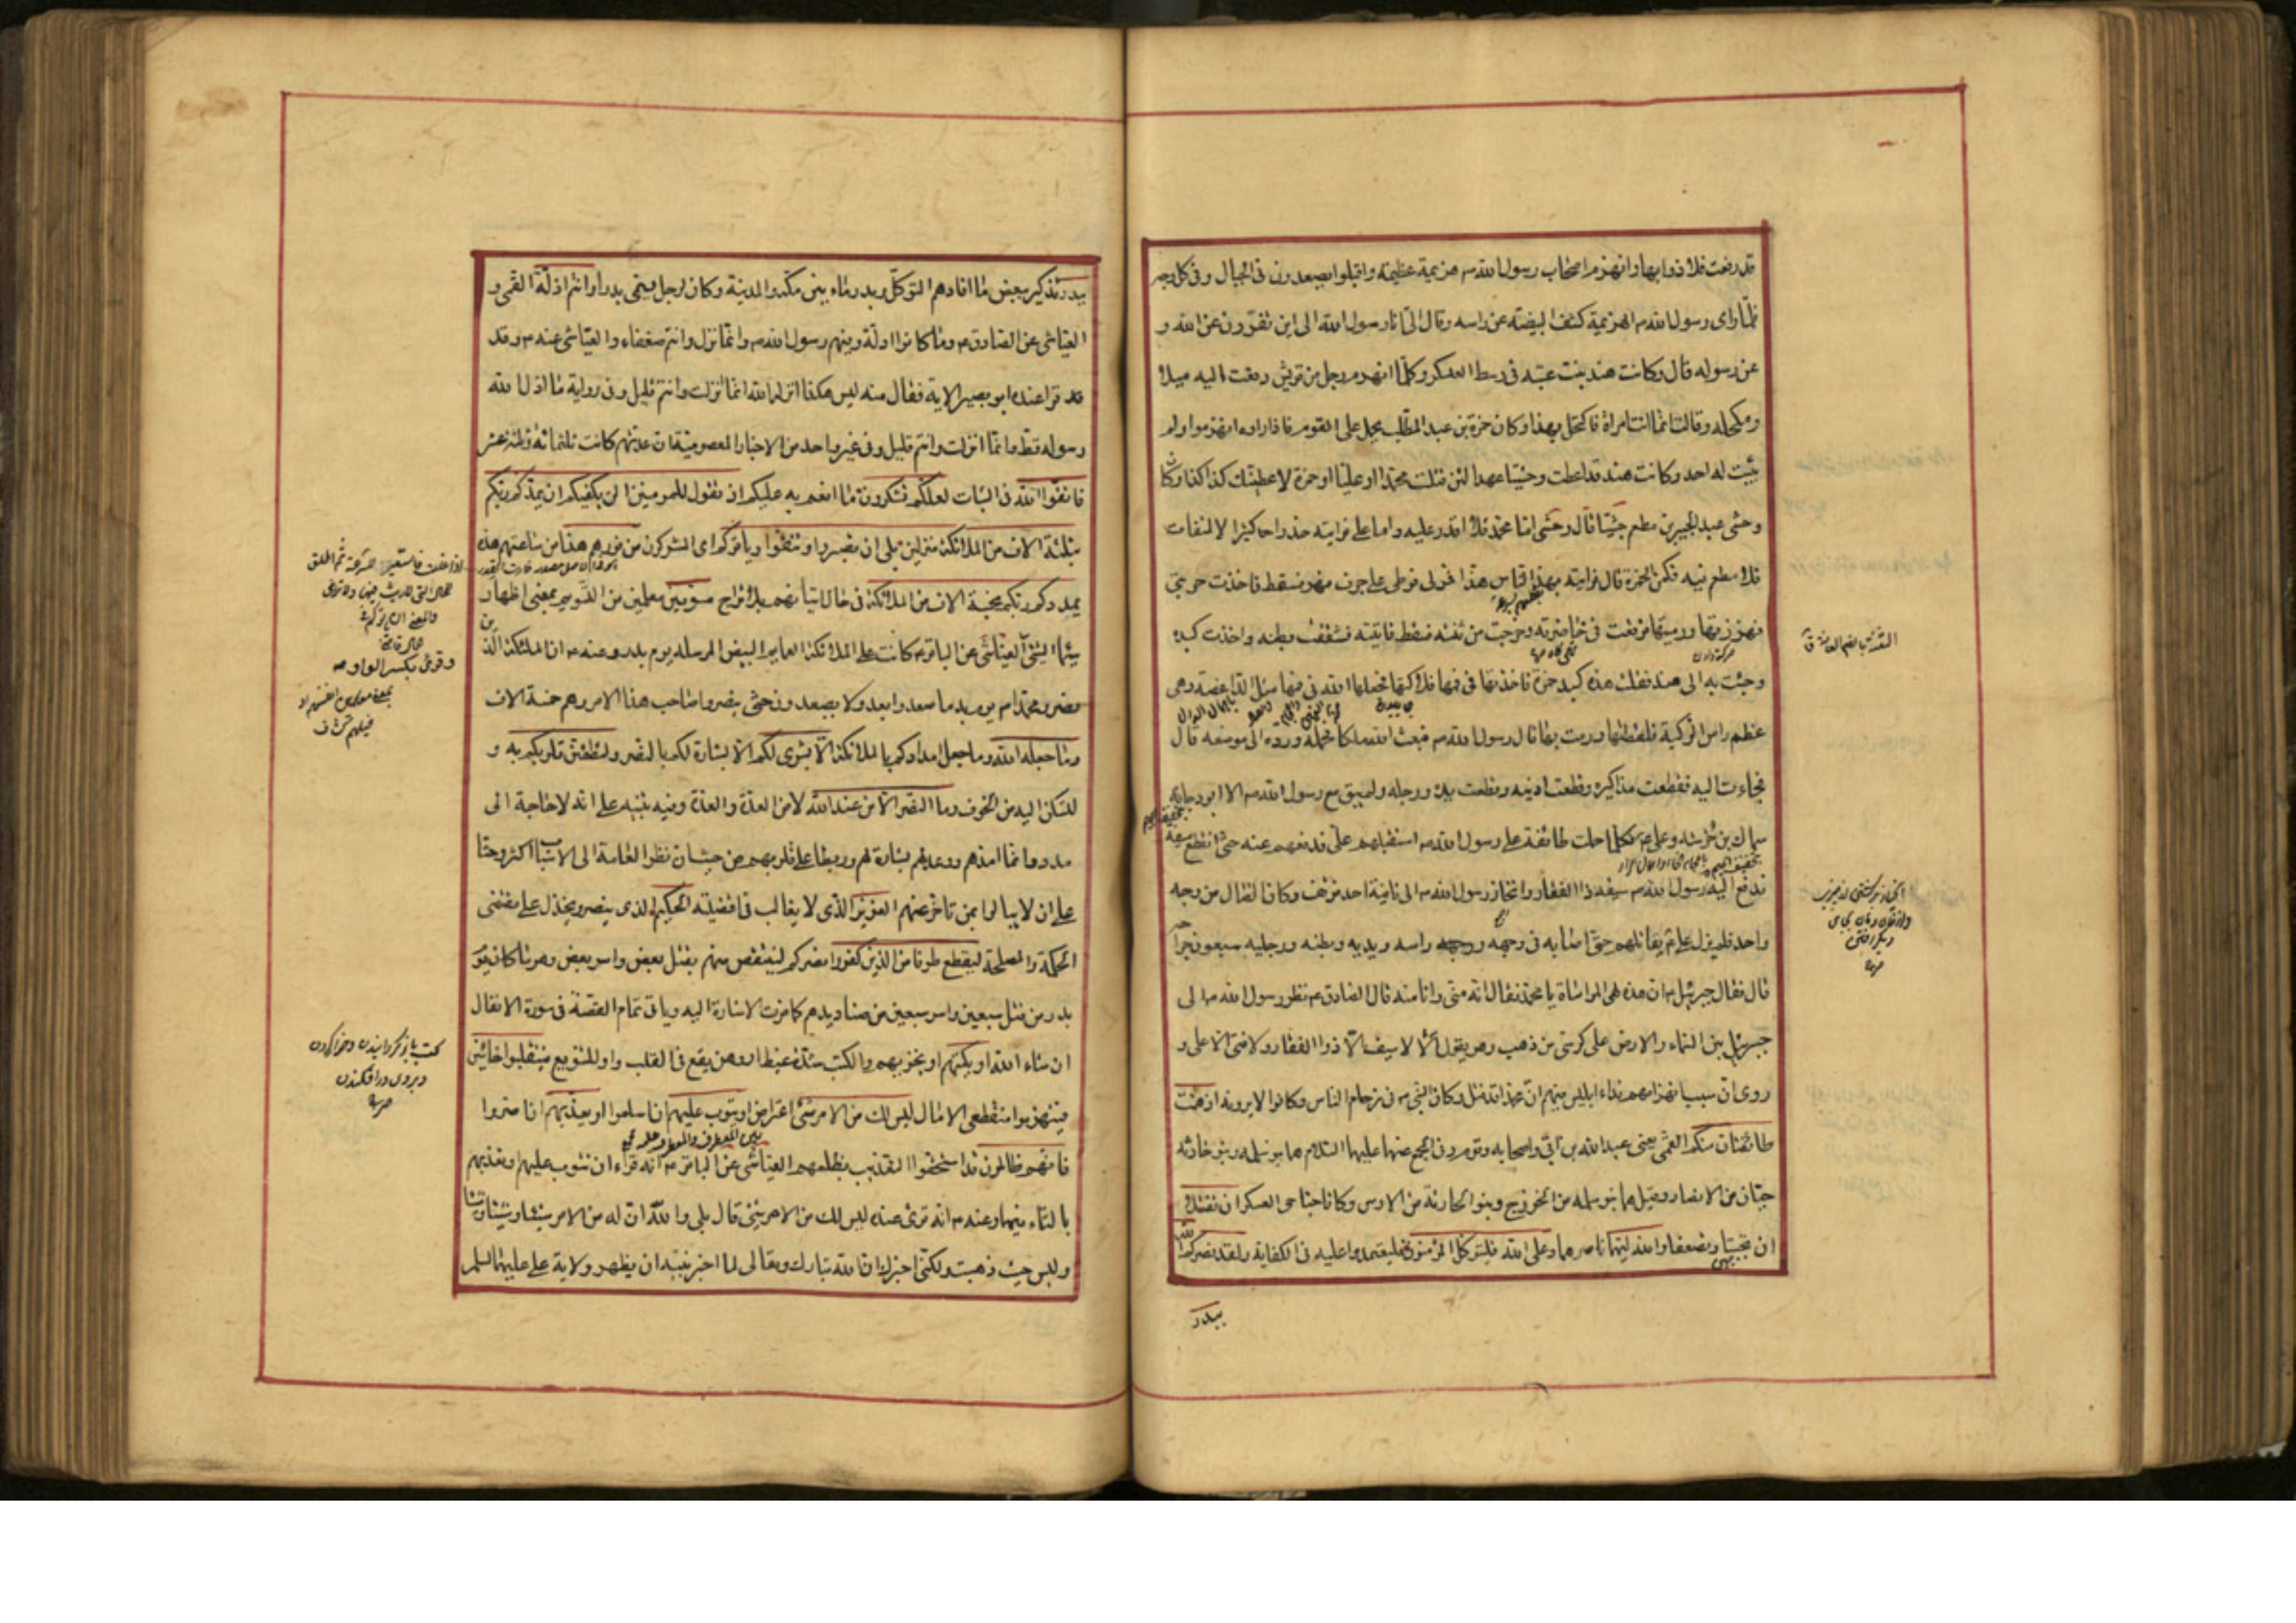 قد رفعت فلاذوا بها وانهزم اصحاب رسول الله ص هزيمة عظيمة واقبلوا يصعدون فى الجبال وفى كل وجه
فلمّا راى رسول الله ص الهزيمة كشف البيضة عن راسه وقال الىّ انا رسول الله الى اين تفرّون عن الله و
عن رسوله قال وكانت هند بنت عتبه فى وسط العسكر وكلّما انهزم رجل من قريش دفعت اليه ميلا
ومكحله وقالت انّما انت امراة فاكتحل بهذا وكان حمزة بن عبد المطّلب يحمل على القوم فاذا راوه انهزموا ولم
يثبت له احد وكانت هند قد اعطت وحشيّا عهدا لئن قتلت محمّدا او عليّا او حمزة لاعطينّك كذا كذا وكان
وحشى عبد الجبير بن مطعم حبشيّا فقال وحشى امّا محمّد فلا اقدر عليه وامّا على فرايته حذرا حد كثير الالتفات
فلا مطمع فيه فكمن لحمزة قال فرايته يهدّ الناس هدّا فمر لى فوطى على جرف نهر فسقط فاخذت حربتى
فهززتها ورميتها فوقعت فى خاصرته وخرجت من ثنته فسقط فاتيته فشققت بطنه واخذت كبده
وجئت به الى هند فقلت هذه كبد حمزة فاخذتها فى فيها فلاكتها فجعلها الله فى فيها مثل الداغصة وهى
عظم راس الركبة فلفظتها ورمت بها قال رسول الله ص فبعث الله ملكا فحمله ورده الى موضعه قال
فجاءت اليه فقطعت مذاكيره وقطعت اذنيه وقطعت يده ورجله ولم يبق مع رسول الله ص الا ابو دجانة
سماك بن خرشه وعلى ع فكلما حملت طائفة على رسول الله ص استقبلهم على فدفعهم عنه حتى انقطع سيفه
فدفع اليه رسول الله ص سيفه ذا الفقار وانحاز رسول الله ص الى ناحية احد فوقف وكان القتال من وجه
واحد فلم يزل على ع يقاتلهم حتى اصابه فى وجهه وراسه ويديه وبطنه ورجليه سبعون جراحة
قال فقال جبرئيل ان هذه لهى المواساة يا محمّد فقال انه منّى وانا منه قال الصادق ع نظر رسول الله ص الى
جبرئيل بين السماء والارض على كرسى من ذهب وهو يقول لا سيف الّا ذو الفقار ولا فتى الا على و
روى انّ سبب انهزامهم نداء ابليس فيهم انّ محمدا قد قتل وكان النبى ص فى زحام الناس وكانوا لا يرونه اذ همّت
طائفتان منكم القمى يعنى عبد الله بن ابى واصحابه وقومه وفى المجمع عنهما عليهما السّلام هما بنو سلمه وبنو حارثه
حيّان من الانصار وقيل هما بنو سلمه من الخزرج وبنو الحارثة من الاوس وكانا جناحى العسكر ان تفشلا
ان تجبنا وتضعفا والله وليّهما ناصرهما وعلى الله فليتوكّل المؤمنون فليعتمدوا عليه فى الكفاية ولقد نصركم الله
ببدر
ببدر تذكير ببعض ما افادهم التوكّل وبدر ماء بين مكّة والمدينة وكان لرجل يسمّى بدرا وانتم اذلّة القمى و
العيّاشى عن الصادق ع وما كانوا اذلّة وفيهم رسول الله ص وانّما نزل وانتم ضعفاء والعيّاشى عنه ع وقد
قرا عنده ابو بصير الاية فقال مه ليس هكذا انزلها الله انّما نزلت وانتم قليل وفى رواية ما اذلّ الله
رسوله قطّ وانّما انزلت وانتم قليل وفى غير واحد من الاخبار المعصوميّة ان عدّتهم كانت ثلثمائة وثلثة عشر
فاتقوا الله فى الثبات لعلّكم تشكرون ما انعم به عليكم اذ تقول للمؤمنين الن يكفيكم ان يمدّكم ربّكم
بثلثة الاف من الملائكة منزلين بلى ان تصبروا وتتّقوا وياتوكم اى المشركون من فورهم هذا من ساعتهم هذه
يمددكم ربّكم بخمسة الاف من الملائكة فى حال اتيانهم بلا تراخ مسوّمين معلمين من التسويم بمعنى اظهار
سيماء الشئ العيّاشى عن الباقر ع كانت على الملائكة العمايم البيض المرسلة يوم بدر وعنه ع ان الملئكة الذين
نصروا محمّدا ص يوم بدر ما صعدوا بعد ولا يصعدون حتى ينصروا صاحب هذا الامر وهم خمسة الاف
وما جعله الله وما جعل امدادكم بالملائكة الّا بشرى لكم الّا بشارة لكم بالنصر ولتطمئنّ قلوبكم به و
لتسكن اليه من الخوف وما النصر الّا من عند الله لا من العدّة والعدّة وفيه تنبيه على انه لا حاجة الى
مدد وانما امدّهم ووعدهم بشارة لهم وربطا على قلوبهم من حيث ان نظر العامة الى الاسباب اكثر وحثّا
على ان لا يبالوا بمن تاخّر عنهم العزيز الذى لا يغالب فى اقضيته الحكيم الذى ينصر ويخذل على مقتضى
الحكمة والمصلحة ليقطع طرفا من الذين كفروا نصركم لينتقص منهم بقتل بعض واسر بعض وهو ما كان يوم
بدر من قتل سبعين واسر سبعين من صناديدهم كما مرّت الاشارة اليه وياتى تمام القصّة فى سورة الانفال
ان شاء الله او يكبتهم او يخزيهم والكبت شدّة غيظ او وهن يقع فى القلب واو للتنويع فينقلبوا خائبين
فينهزموا منقطعى الامال ليس لك من الامر شئ اعتراض او يتوب عليهم ان اسلموا او يعذّبهم ان اصرّوا
فانّهم ظالمون قد استحقّوا التعذيب بظلمهم العيّاشى عن الباقر ع انه قرء ان تتوب عليهم او تعذّبهم
بالتاء فيهما وعنه ع انه قرئ عنده ليس لك من الامر شئ قال بلى والله انّ له من الامر شيئا وشيئا وشيئا
وليس حيث ذهبت ولكنّى اخبرك ان الله تبارك وتعالى لما اخبر نبيّه ان يظهر ولاية على عليهما السلم
وقرئ بكسر الواو